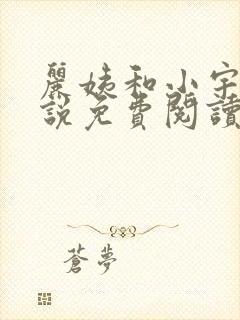 麗姨和小宇
說免費閱讀
蒼夢